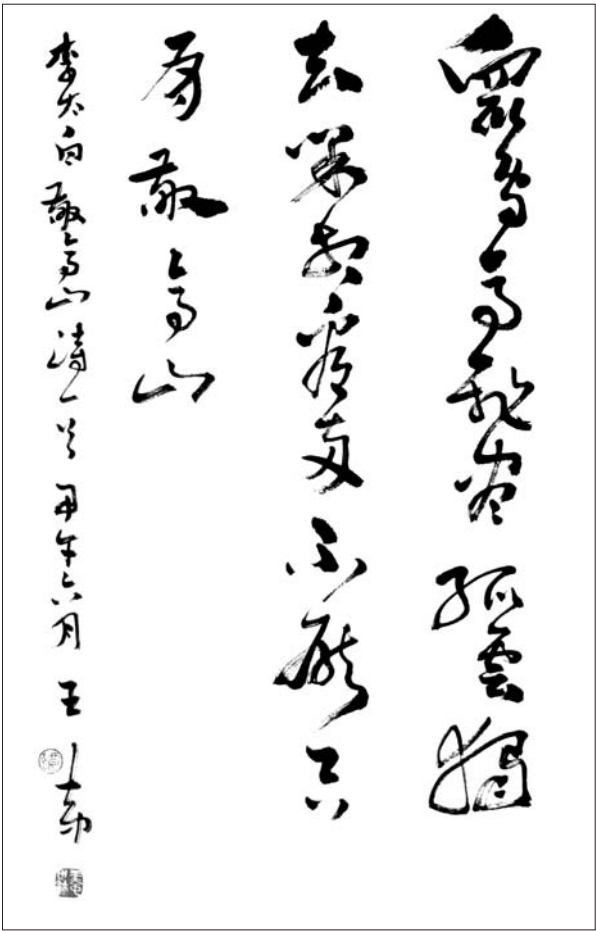 眾鳥高飛盡孤雲獨
去閑相看兩不厭只
有敬亭山
李太白敬亭山詩一首 甲午六月 王